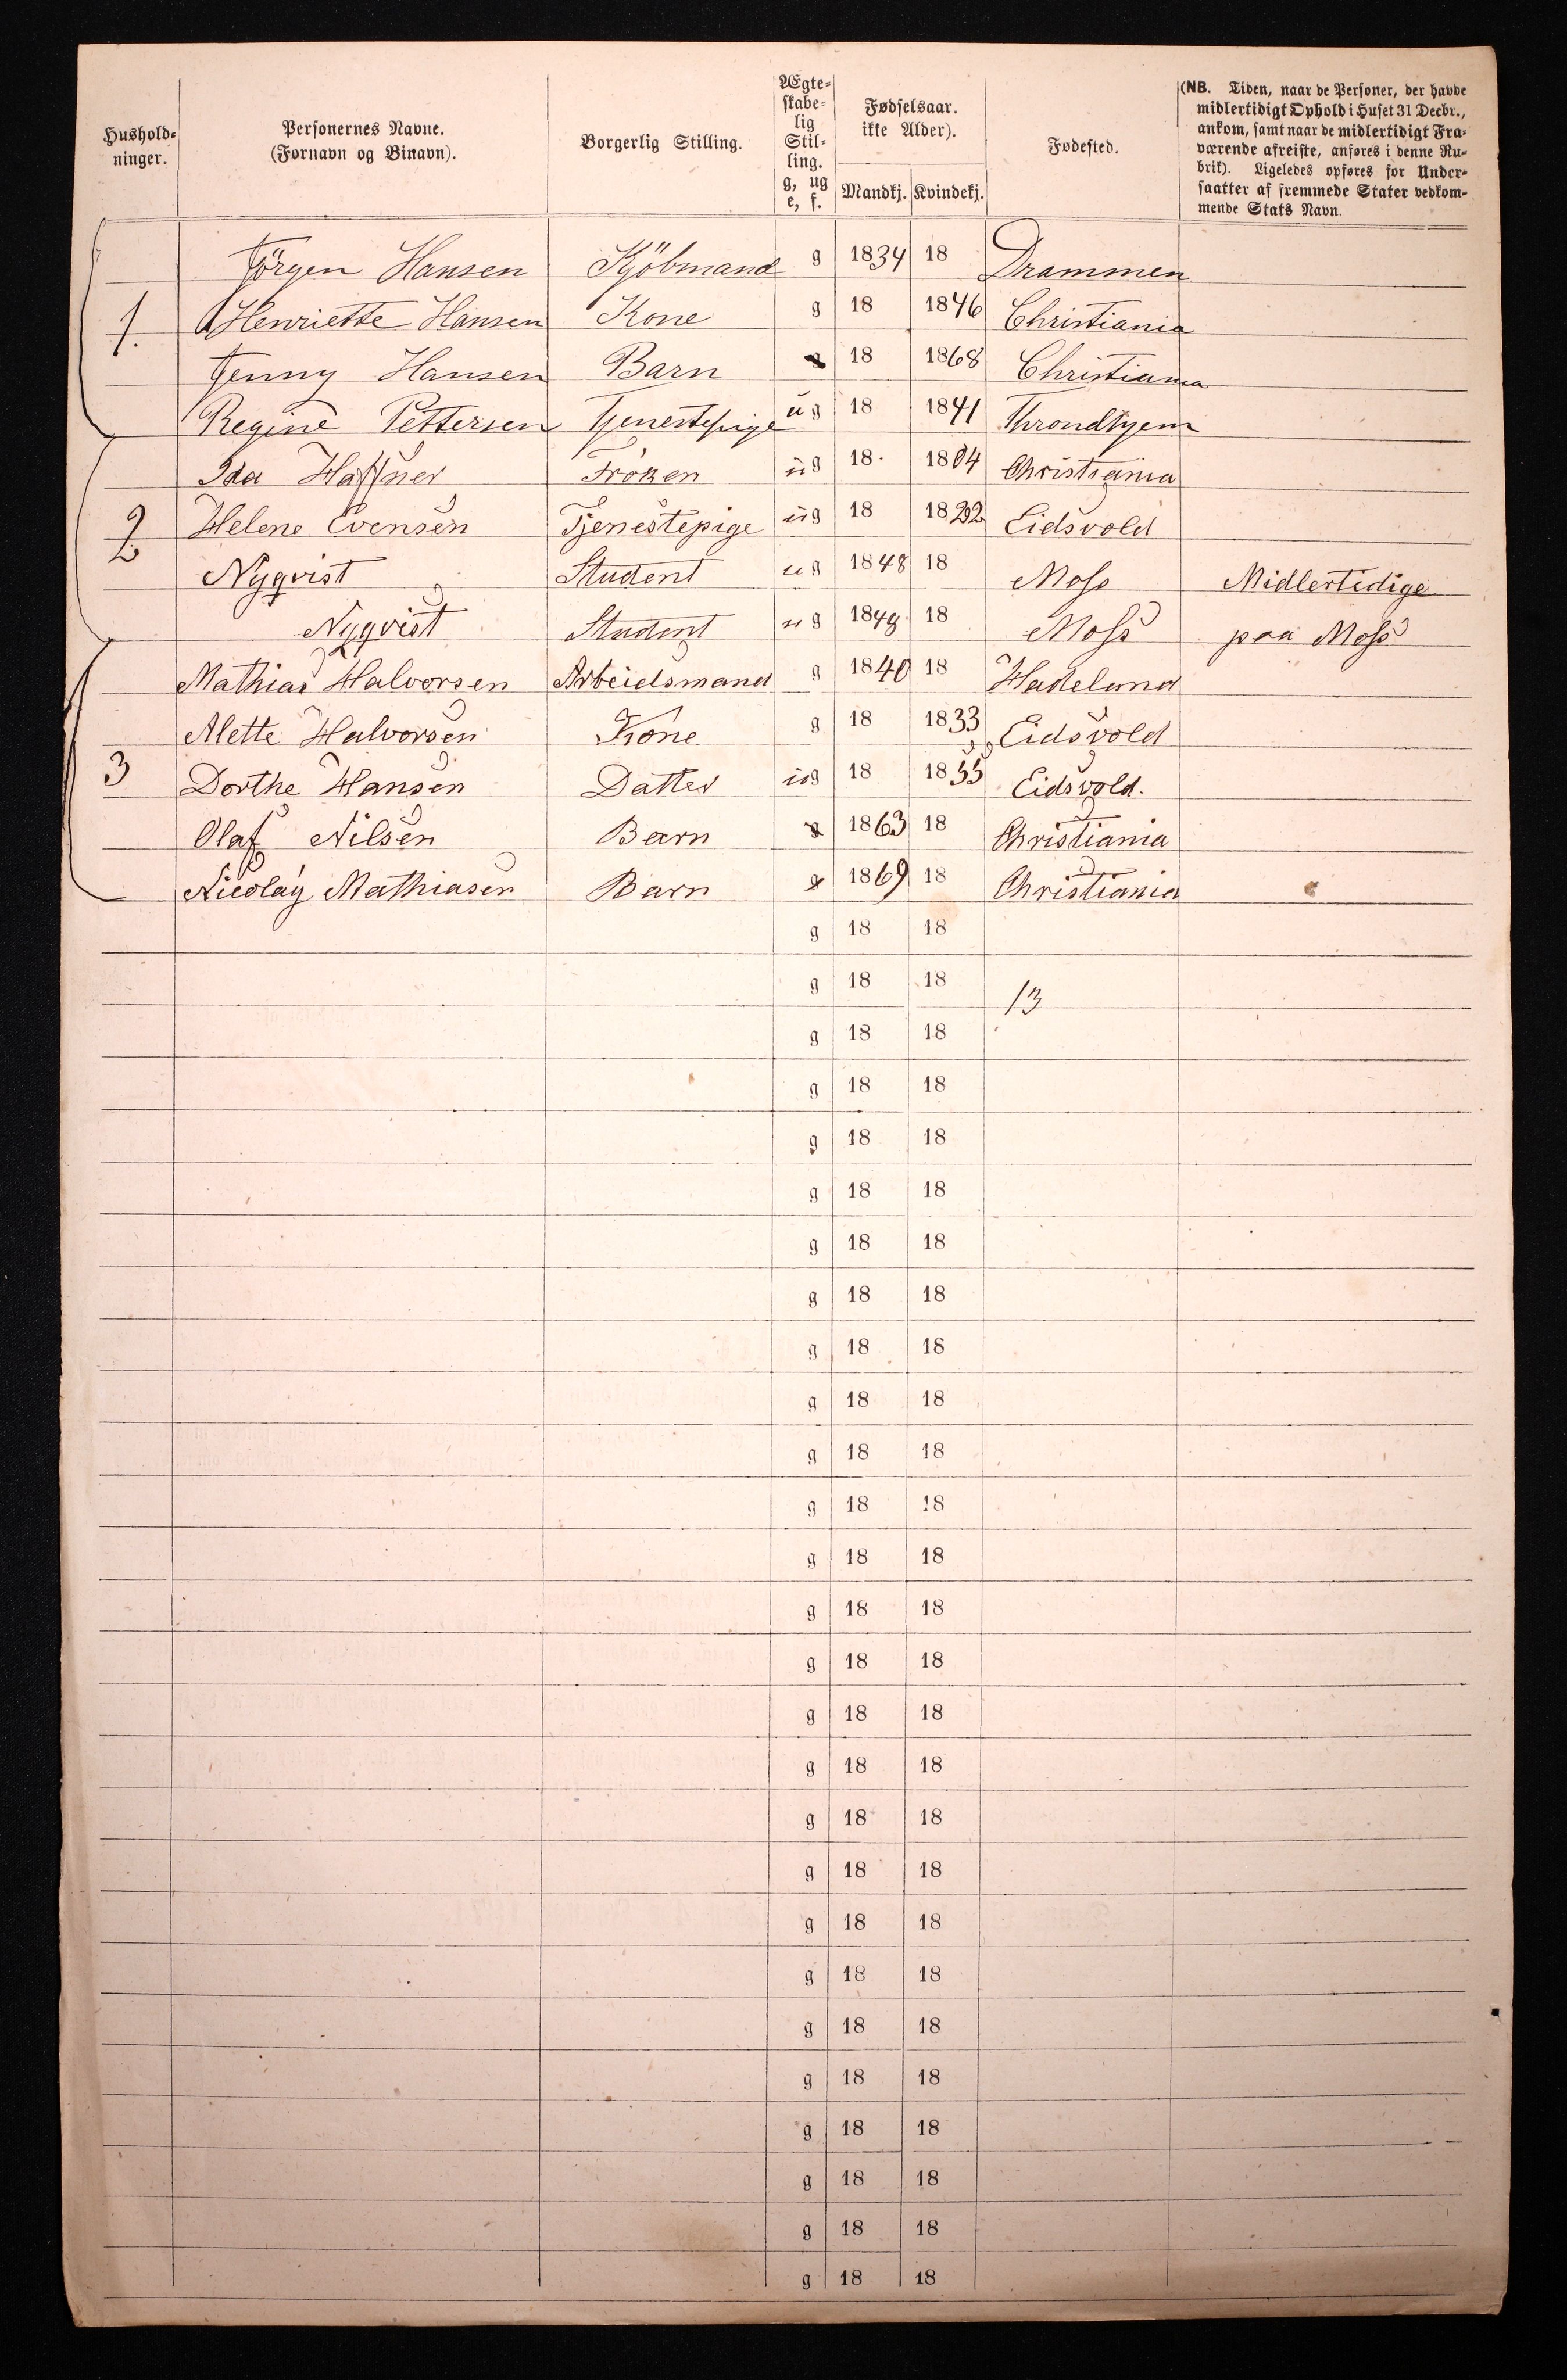 Hushold-
ninger.
Personernes Navne.
(Fornavn og Binavn).
Borgerlig Stilling.
Ægte-
skabe-
lig
Stil-
ling.
g, ug
e, f.
Fødselsaar.
ikke Alder).
Mandkj. Kvindekj.
Fødested.
(NB. Tiden, naar de Personer, der havde
midlertidigt Ophold i Huset 31 Decbr.,
ankom, samt naar de midlertidigt Fra-
værende afreiste, anføres i denne Ru-
brik). Ligeledes opføres for Under-
saatter af fremmede Stater vedkom-
mende Stats Navn.
Jörgen Hansen Kjöbmand g 1834 18 Drammen
1. Henriette Hansen Kone g 18 1846 Christiania
Jenny Hansen Barn 18 1868 Christiania
Regine Pettersen Tjenestepige ug 18 1841 Throndhjem
Ida Haffner Fröken ug 18 1804 Christiania
2 Helene Evensen Tjenestepige ug 18 Eidsvold
Nyqvist Student ug 1848 18 Moss Midlertidige
Nyqvist Student ug 1848 18 Moss paa Moss
Mathias Halvorsen Arbeidsmand g 1840 18 Hadeland
Alette Halvorsen Kone g 18 1833 Eidsvold
3 Dorthe Hansen Datter ug 18 1855 Eidsvold.
Olaf Nilsen Barn g 1863 18 Christiania
Nicolay Mathiasen Barn g 1869 18 Christiania
g 18 18
g 18 18 13
g 18 18
g 18 18
g 18 18
g 18 18
g 18 18
g 18 18
g 18 18
g 18 18
g 18 18
g 18 18
g 18 18
g 18 18
g 18 18
g 18 18
g 18 18
g 18 18
g 18 18
g 18 18
g 18 18
g 18 18
g 18 18
g 18 18
g 18 18
g 18 18
g 18 18